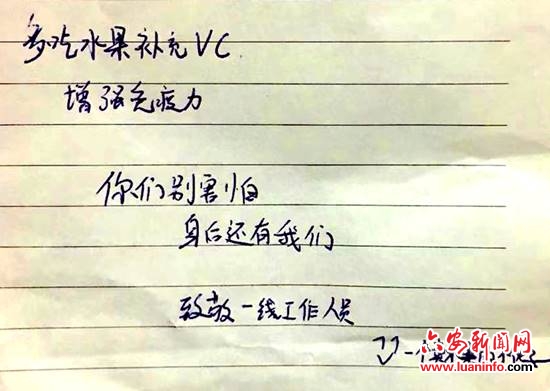 多吃水果补充VC
增强免疫力
你们别害怕
身后还有我们
致敬一线工作人员
一个
六安新闻网
www.luaninfo.com